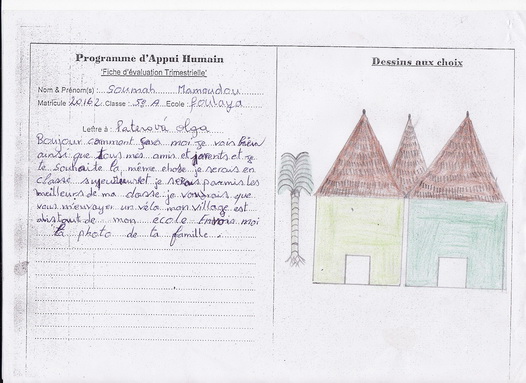 Programme d'Appui Humain
'Fiche d'évaluation Trimestrielle'
Nom & Prénom(s) : Soumah Mamoudou
Matricule 20162 Classe : 5e A Ecole Foulaya
Lettre à : Olga
Bonjour comment moi je vais bien
ainsi que tous mes amis et parents et je
te souhaite la même chose je serais en
classe et je serais parmis les
meilleurs de ma classe je voudrais que
vous m'envoyer un vélo mon village est
distant de mon ecole Envois moi
la photo de ta famille.
Dessins aux choix